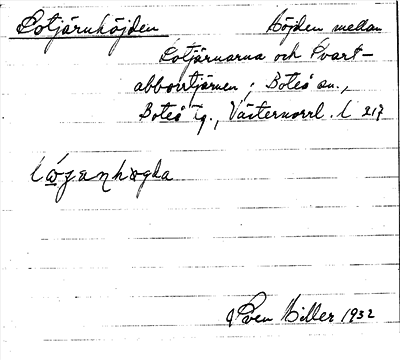 Lotjärnhöjden Höjden mellan
Lotjärnarna och Svart-
abborrtjärnen i Boteå sn.,
Boteå tg., Västernorrl. l 217
Sven Hiller 1932